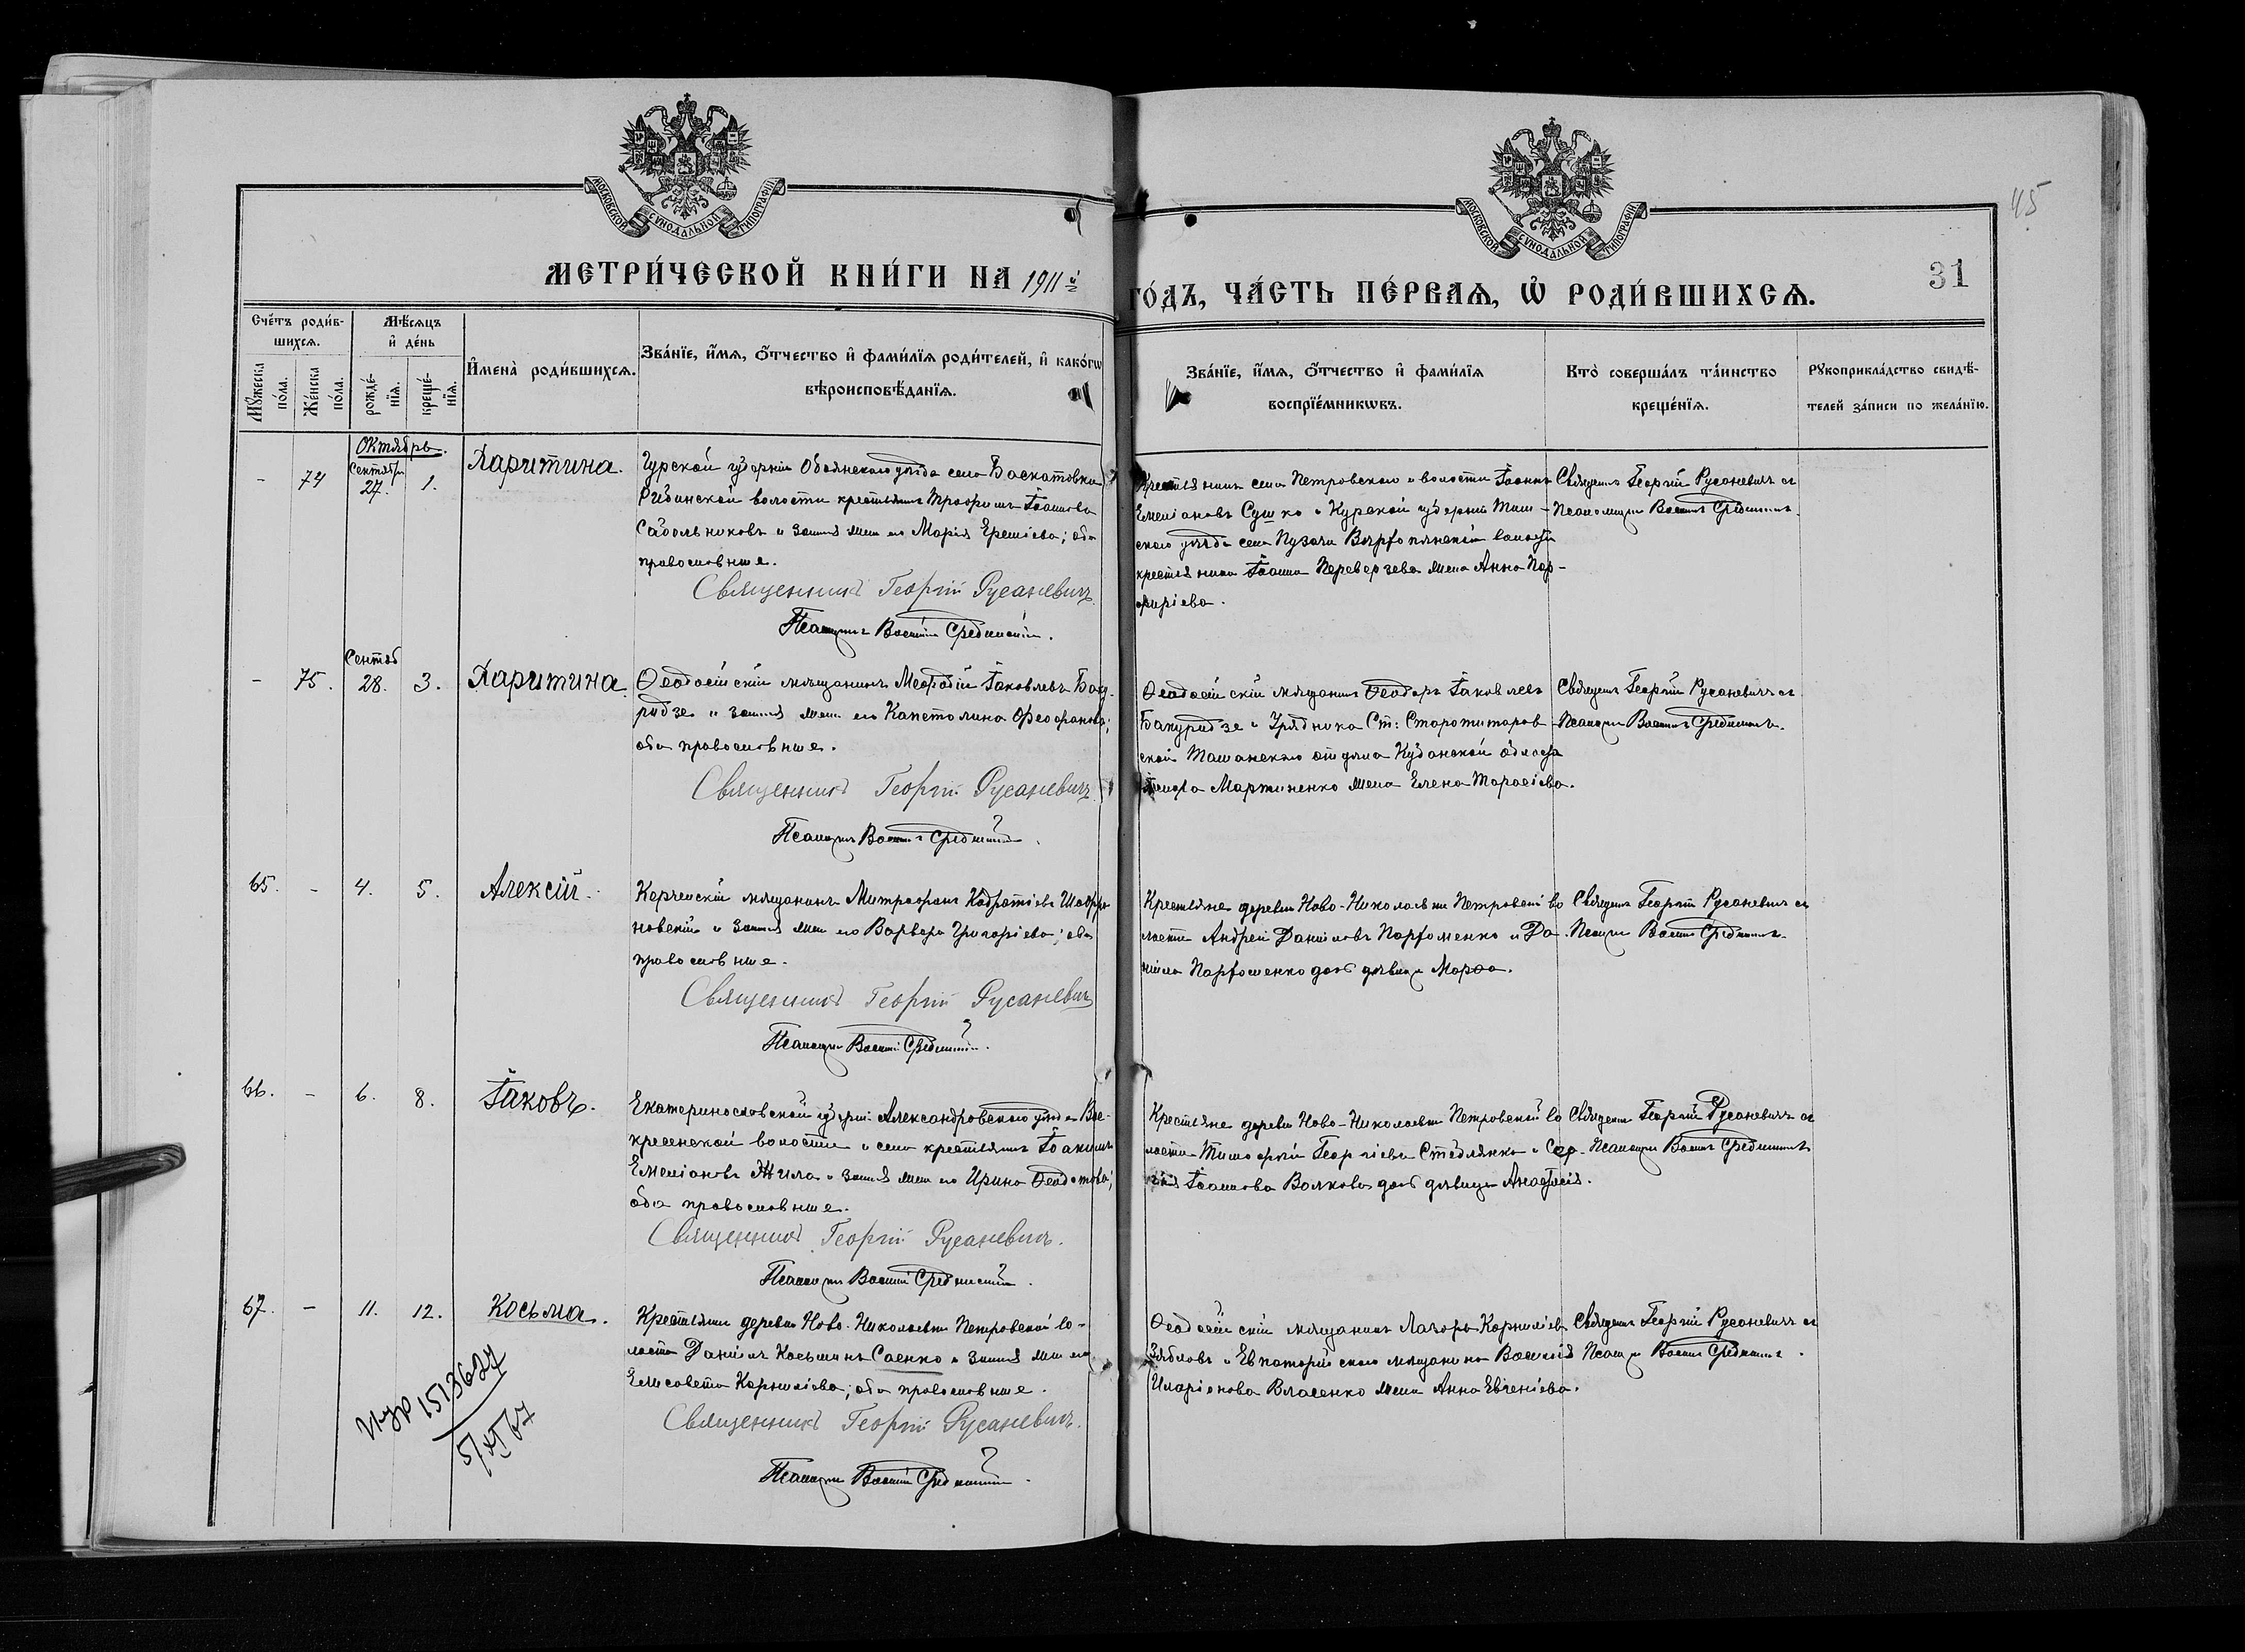 45
МОСКОВСКОЙ СУНОДАЛЬНОЙ ТИПОГРАФІИ
МОСКОВСКОЙ СУНОДАЛЬНОЙ ТИПОГРАФІИ
МЕТРИ́ЧЕСКОЙ КНИ́ГИ НА 1911й
ГО́ДЪ, ЧА́СТЬ ПЕ́РВАѦ, Ѡ҆ РОДИ́ВШИХСѦ.
31
Сче́тъ роди́в-
шихсѧ.
Мꙋ́жеска по́ла.
Же́нска по́ла.
Мѣ́сѧцъ
и҆ де́нь
рожде́-
нїѧ.
креще́-
нїѧ.
И҆мена̀ роди́вшихсѧ.
Зва́нїе, и҆́мѧ, ѻ҆́тчество и҆ фами́лїѧ роди́телей, и҆ како́гѡ
вѣроисповѣ́данїѧ.
Зва́нїе, и҆́мѧ, ѻ҆́тчество и҆ фами́лїѧ
воспрїе́мникѡвъ.
Кто̀ соверша́лъ та́инство
креще́нїѧ.
Рꙋкоприкла́дство свидѣ́-
телей за́писи по жела́нїю.
Октябрь.
- 74 Сентябр 27. 1. Харитина.
Курской губерніи Обоянскаго уѣзда села Баскатовка
Рыбинской волости крестьянинъ Трофимъ Іоанновъ
Сабольниковъ и законная жена его Марія Ереміева; оба
православные.
Священникъ Георгій Русаневичъ.
Псаломщикъ Василій Срединскій.
Крестьянинъ села Петровскаго и волости Іоаннъ
Емеліановъ Сушко и Курской губерніи Тим-
скаго уѣзда села Пузачи волости
крестьянина Іоанна Переверзева жена Анна Пор-
фиріева.
Священникъ Георгій Русаневичъ съ
Псаломщикомъ Василіемъ Срединскимъ.
- 75. Сентяб 28. 3. Харитина.
Ѳеодосійскій мѣщанинъ Меѳодій Іаковлевъ Баку-
ридзе и законная жена его Капетолина Ѳеофанова;
оба православные.
Священникъ Георгій Русаневичъ
Псаломщикъ Василій Срединскій.
Ѳеодосійскій мѣщанинъ Ѳеодоръ Іаковлевъ
Бакуридзе и Урядника Ст: Старотитаров-
ской Таманскаго отдѣла Кубанской области
Мартиненко жена Елена Тарасіева.
Священникъ Георгій Русаневичъ съ
Псаломщикомъ Василіемъ Срединскимъ.
65. - 4. 5. Алексій.
Керченскій мѣщанинъ Митрофанъ Кодратіевъ Шафра-
новскій и законная жена его Варвара Григоріева; оба
православные.
Священникъ Георгій Русаневичъ
Псаломщикъ Василій Срединскій.
Крестьяне деревни Ново-Николаевки Петровской во
лости Андрей Даніиловъ Парфоменко и Да-
ніила Парфоменко дочь дѣвица Марѳа.
Священникъ Георгій Русаневичъ съ
Псаломщикомъ Василіемъ Срединскимъ.
66. - 6. 8. Іаковъ.
Екатеринославской губерніи Александровскаго уѣзда Вос-
кресенской волости и села крестьянинъ Іоакимъ
Емеліановъ Жила и законная жена его Ирина Ѳеодотова;
оба православные.
Священникъ Георгій Русаневичъ.
Псаломщикъ Василій Срединскій.
Крестьяне деревни Ново-Николаевки Петровской во
лости Тимофей Георгіевъ Стеблянко и Сер-
гія Іоаннова Волкова дочь дѣвица Анастасія.
Священникъ Георгій Русаневичъ съ
Псаломщикомъ Василіемъ Срединскимъ
67. - 11. 12. Косьма.
Крестьянинъ деревни Ново-Николаевки Петровской во-
лости Даніилъ Косьминъ Саенко и законная жена его
Елисавета Корниліева; оба православные.
Священникъ Георгій Русаневичъ.
Псаломщикъ Василій Срединскій.
Ѳеодосійскій мѣщанинъ Лазорь Корниліевъ
Зябловъ и Евпаторійскаго мѣщанина Василія
Иларіонова Власенко жена Анна Евгеніева.
Священникъ Георгій Русаневичъ съ
Псаломщикомъ Василіемъ Срединскимъ.
1513627
5/XI 67